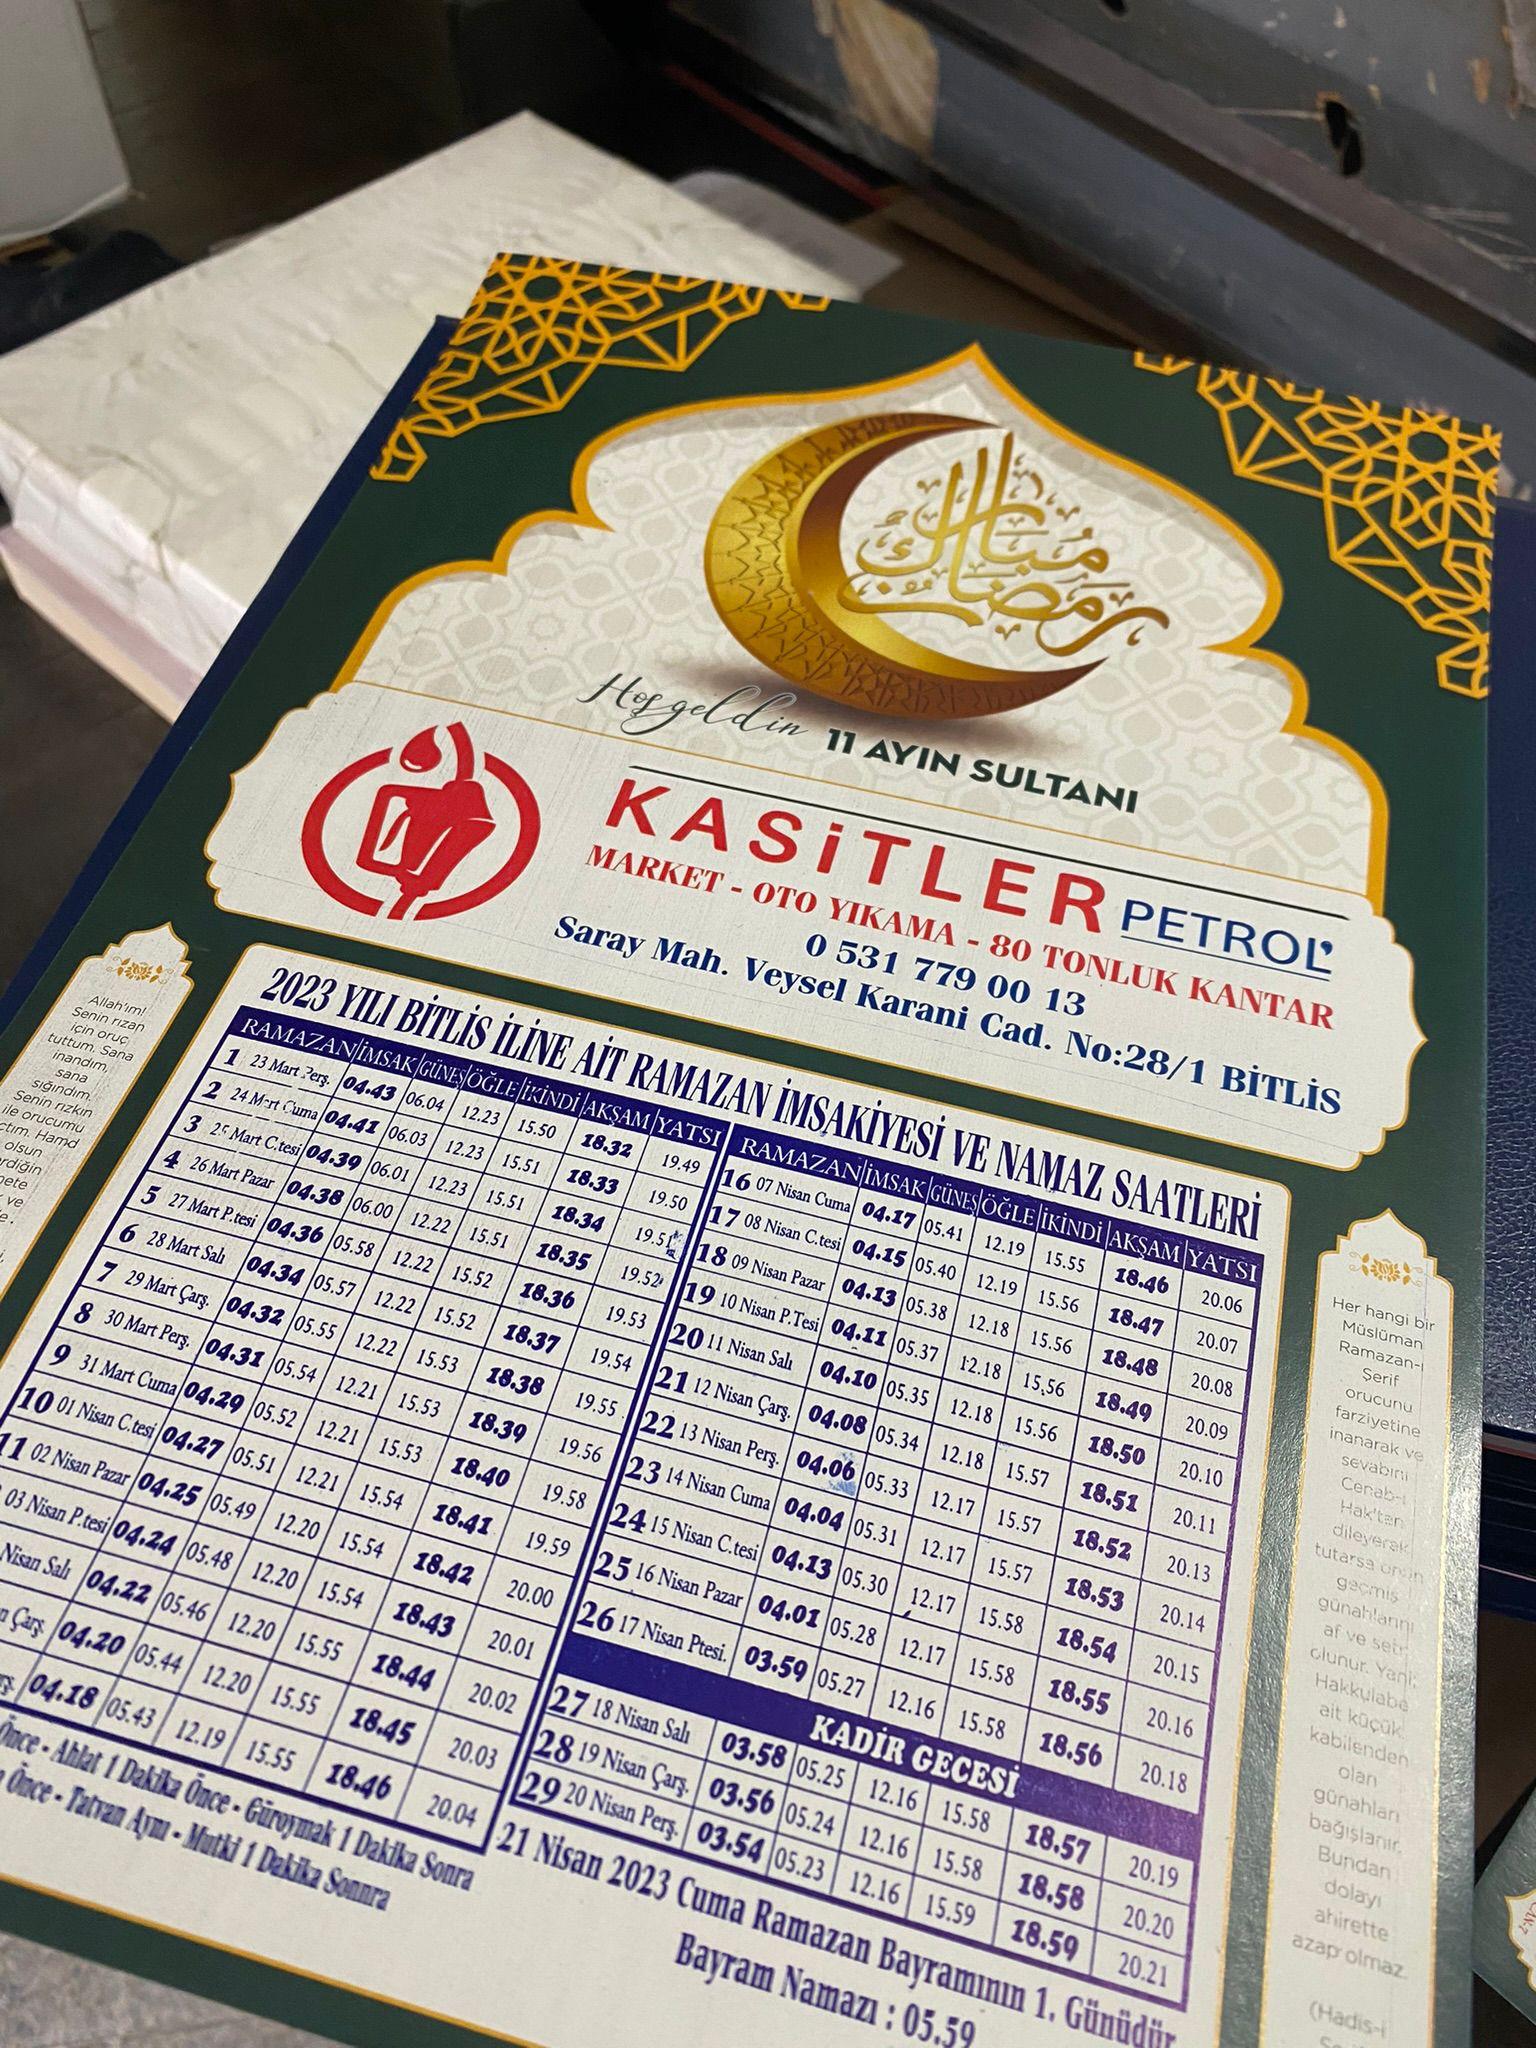 رمضان مبارك
Hoşgeldin 11 AYIN SULTANI
KASİTLER PETROL
MARKET - OTO YIKAMA - 80 TONLUK KANTAR
0 531 779 00 13
Saray Mah. Veysel Karani Cad. No:28/1 BİTLİS
2023 YILI BİTLİS İLİNE AİT RAMAZAN İMSAKİYESİ VE NAMAZ SAATLERİ
RAMAZAN İMSAK GÜNEŞ ÖĞLE İKİNDİ AKŞAM YATSI
1 23 Mart Perş. 04.43 06.04 12.23 15.50 18.32 19.49
2 24 Mart Cuma 04.41 06.03 12.23 15.51 18.33 19.50
3 25 Mart C.tesi 04.39 06.01 12.23 15.51 18.34 19.51
4 26 Mart Pazar 04.38 06.00 12.22 15.51 18.35 19.52
5 27 Mart P.tesi 04.36 05.58 12.22 15.52 18.36 19.53
6 28 Mart Salı 04.34 05.57 12.22 15.52 18.37 19.54
7 29 Mart Çarş. 04.32 05.55 12.22 15.53 18.38 19.55
8 30 Mart Perş. 04.31 05.54 12.21 15.53 18.39 19.56
9 31 Mart Cuma 04.29 05.52 12.21 15.53 18.40 19.58
10 01 Nisan C.tesi 04.27 05.51 12.21 15.54 18.41 19.59
11 02 Nisan Pazar 04.25 05.49 12.20 15.54 18.42 20.00
03 Nisan P.tesi 04.24 05.48 12.20 15.54 18.43 20.01
Nisan Salı 04.22 05.46 12.20 15.55 18.44 20.02
Çarş. 04.20 05.44 12.20 15.55 18.45 20.03
04.18 05.43 12.19 15.55 18.46 20.04
Önce - Ahlat 1 Dakika Önce - Güroymak 1 Dakika Sonra
Önce - Tatvan Aynı - Mutki 1 Dakika Sonnra
RAMAZAN İMSAK GÜNEŞ ÖĞLE İKİNDİ AKŞAM YATSI
16 07 Nisan Cuma 04.17 05.41 12.19 15.55 18.46 20.06
17 08 Nisan C.tesi 04.15 05.40 12.19 15.56 18.47 20.07
18 09 Nisan Pazar 04.13 05.38 12.18 15.56 18.48 20.08
19 10 Nisan P.Tesi 04.11 05.37 12.18 15.56 18.49 20.09
20 11 Nisan Salı 04.10 05.35 12.18 15.56 18.50 20.10
21 12 Nisan Çarş. 04.08 05.34 12.18 15.57 18.51 20.11
22 13 Nisan Perş. 04.06 05.33 12.17 15.57 18.52 20.13
23 14 Nisan Cuma 04.04 05.31 12.17 15.57 18.53 20.14
24 15 Nisan C.tesi 04.13 05.30 12.17 15.58 18.54 20.15
25 16 Nisan Pazar 04.01 05.28 12.17 15.58 18.55 20.16
26 17 Nisan Ptesi. 03.59 05.27 12.16 15.58 18.56 20.18
KADİR GECESİ
27 18 Nisan Salı 03.58 05.25 12.16 15.58 18.57 20.19
28 19 Nisan Çarş. 03.56 05.24 12.16 15.58 18.58 20.20
29 20 Nisan Perş. 03.54 05.23 12.16 15.59 18.59 20.21
21 Nisan 2023 Cuma Ramazan Bayramının 1. Günüdür
Bayram Namazı : 05.59
Allah'ım!
Senin rızan
için oruç
tuttum. Sana
inandım,
sana
sığındım.
Senin rızkın
ile orucumu
Hamd
olsun
Her hangi bir
Müslüman
Ramazan-ı
Şerif
orucunu
farziyetine
inanarak ve
sevabını
Cenab-ı
Hak'tan
dileyerek
tutarsa onun
geçmiş
günahlarını
af ve setr
olunur. Yani,
Hakkulabe
ait küçük
kabilenden
olan
günahları
bağışlanır.
Bundan
dolayı
ahirette
azap olmaz.
(Hadis-i